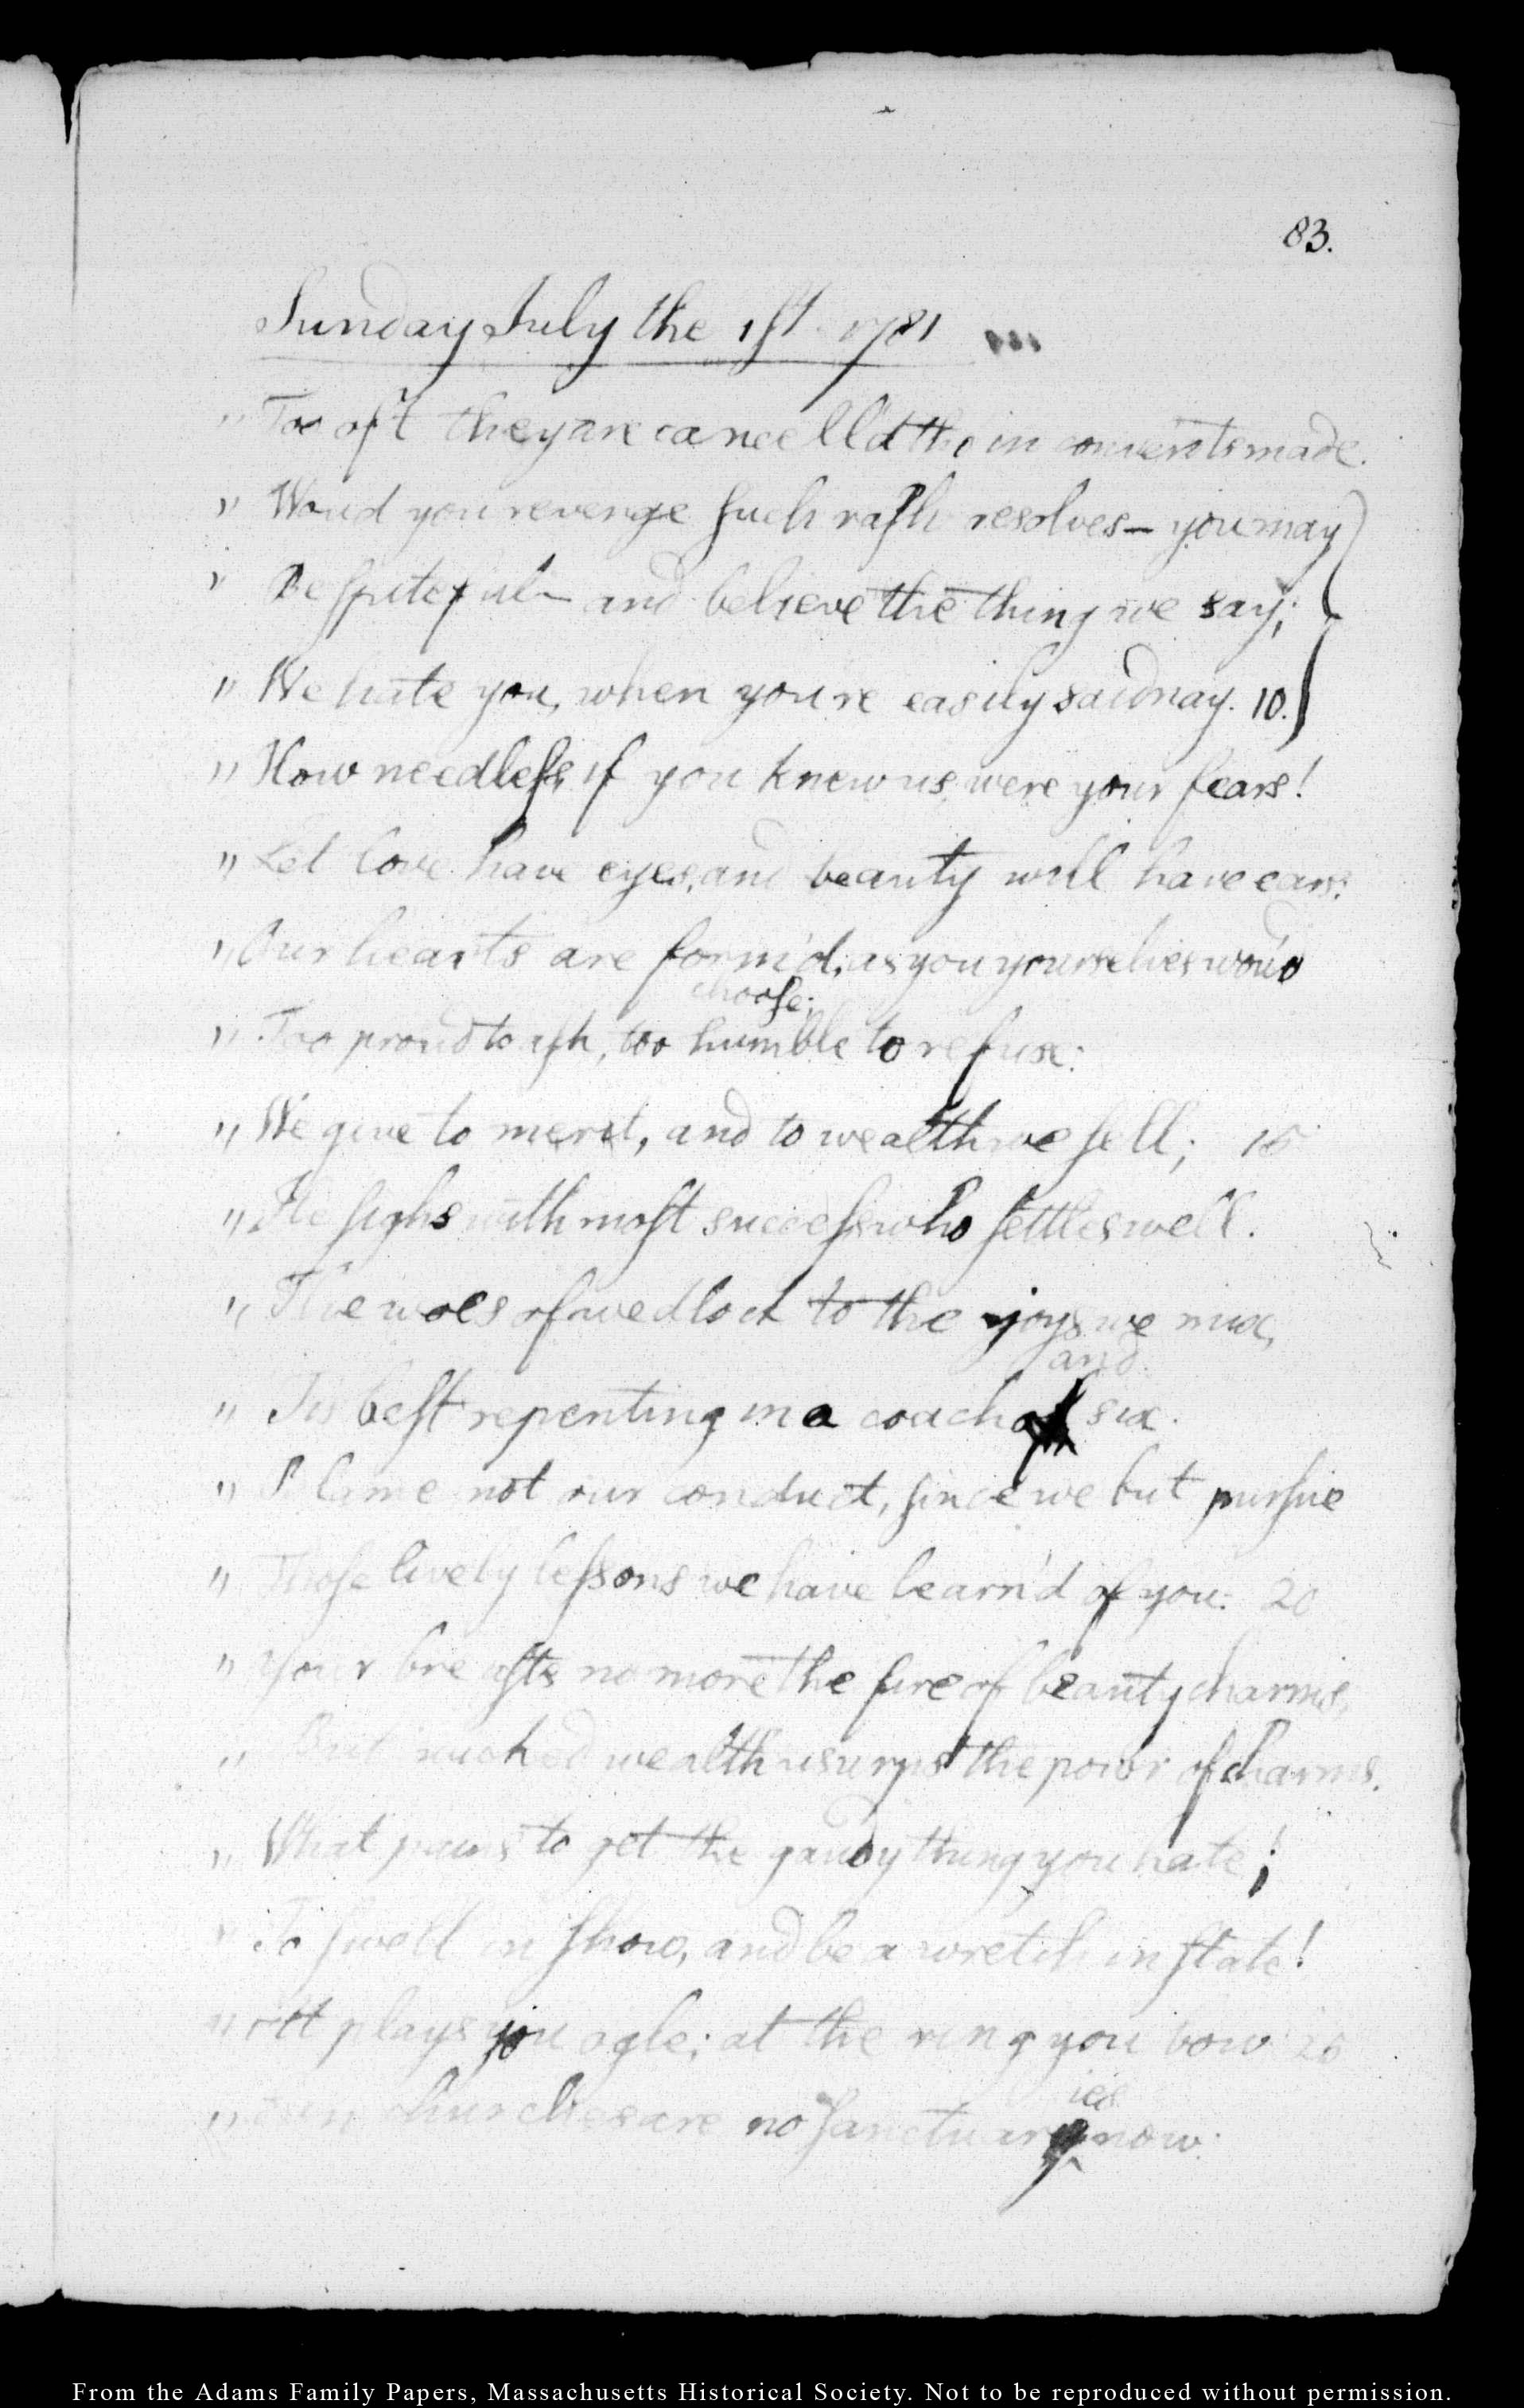 83.
Sunday July the 1st 1781
" Too oft they are cancell'd tho in convents made.
" Woud you revenge such rash resolves — you may
" Be spiteful — and believe the thing we say;
" We hate you, when you're easily said nay. 10.
" How needless if you knew us were your fears!
" Let love have eyes, and beauty will have ears.
" Our hearts are form'd, as you yourselves wou'd
choose;
" Too proud to ask, too humble to refuse:
" We give to merit, and to wealth we sell; 15
" He sighs with most success who settles well.
" The woes of wedlock to the joys we mix,
and
" Tis best repenting in a coach six.
" Blame not our conduct, since we but pursue
" Those lively lessons we have learn'd of you: 20
" Your breasts no more the fire of beauty charms,
" But wicked wealth usurps the power of charms.
" What pains to get the gaudy thing you hate;
" To swell in show, and be a wretch in state!
" At plays you ogle; at the ring you bow 25
ies
" Even churches are no sanctuary now:
From the Adams Family Papers, Massachusetts Historical Society. Not to be reproduced without permission.